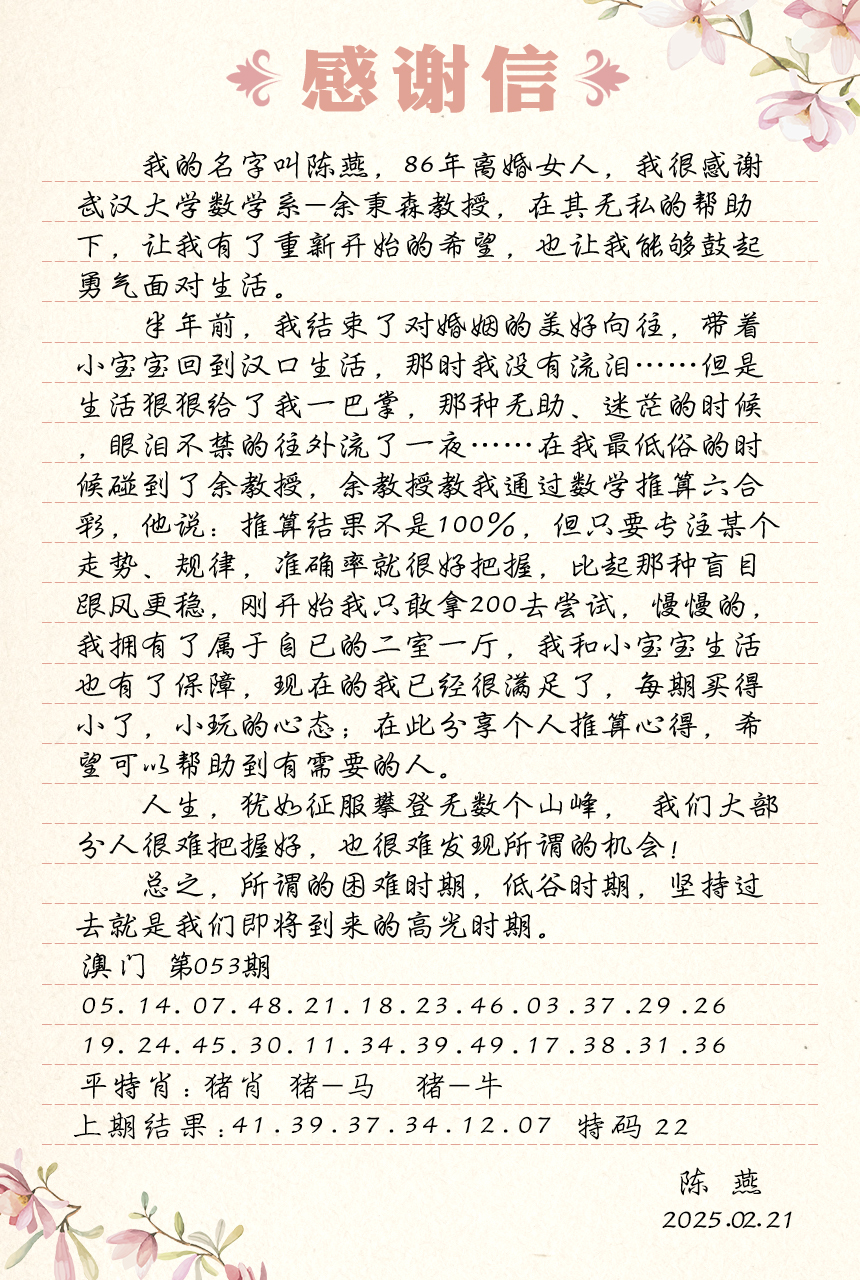 感谢信
我的名字叫陈燕，86年离婚女人，我很感谢
武汉大学数学系—余秉森教授，在其无私的帮助
下，让我有了重新开始的希望，也让我能够鼓起
勇气面对生活。
半年前，我结束了对婚姻的美好向往，带着
小宝宝回到汉口生活，那时我没有流泪……但是
生活狠狠给了我一巴掌，那种无助、迷茫的时候
，眼泪不禁的往外流了一夜……在我最低俗的时
候碰到了余教授，余教授教我通过数学推算六合
彩，他说：推算结果不是100%，但只要专注某个
走势、规律，准确率就很好把握，比起那种盲目
跟风更稳，刚开始我只敢拿200去尝试，慢慢的，
我拥有了属于自已的二室一厅，我和小宝宝生活
也有了保障，现在的我已经很满足了，每期买得
小了，小玩的心态；在此分享个人推算心得，希
望可以帮助到有需要的人。
人生，犹如征服攀登无数个山峰， 我们大部
分人很难把握好，也很难发现所谓的机会！
总之，所谓的困难时期，低谷时期，坚持过
去就是我们即将到来的高光时期。
澳门 第053期
05.14.07.48.21.18.23.46.03.37.29.26
19.24.45.30.11.34.39.49.17.38.31.36
平特肖：猪肖 猪—马 猪—牛
上期结果：41.39.37.34.12.07 特码 22
陈 燕
2025.02.21